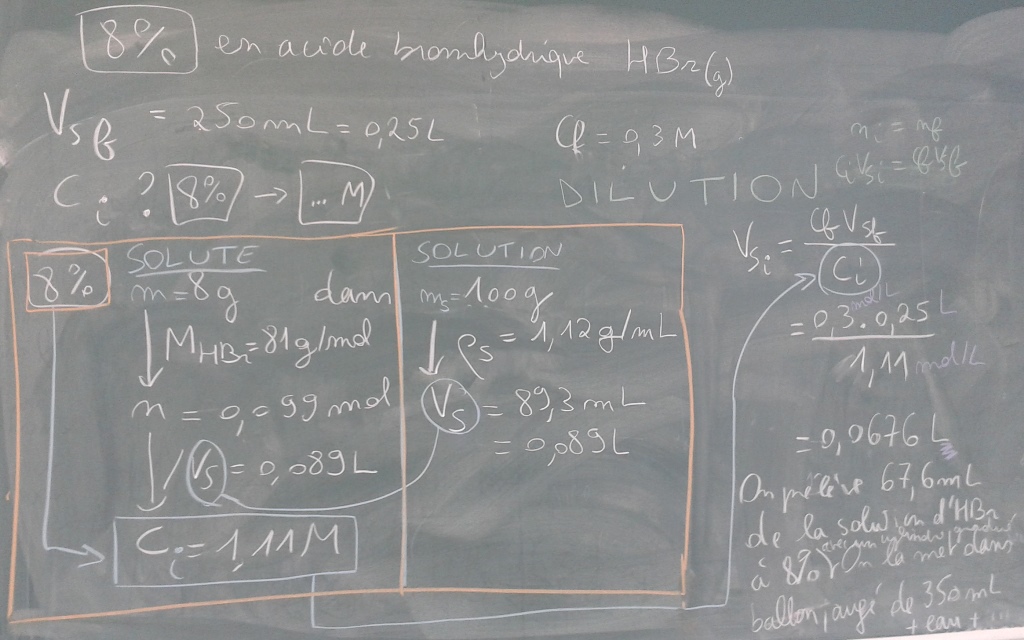 8% en acide bromhydrique HBr(g)
Vsf = 250mL = 0,25L
Cf = 0,3M
ni = nf
CiVsi = CfVsf
Ci ? 8% → ... M
DILUTION
8%
SOLUTE
m = 8g dans
MHBr = 81g/mol
n = 0,099 mol
/ Vs = 0,089L
Ci = 1,11M
SOLUTION
ms = 100g
ρs = 1,12g/mL
Vs = 89,3mL
= 0,089L
Vsi = CfVsf
Ci
= 0,3 mol/L . 0,25L
1,11 mol/L
= 0,0676 L
On prélève 67,6mL
de la solution d'HBr
avec un cylindre gradué
à 8% On la met dans
ballon jaugé de 350mL
+ eau + ...